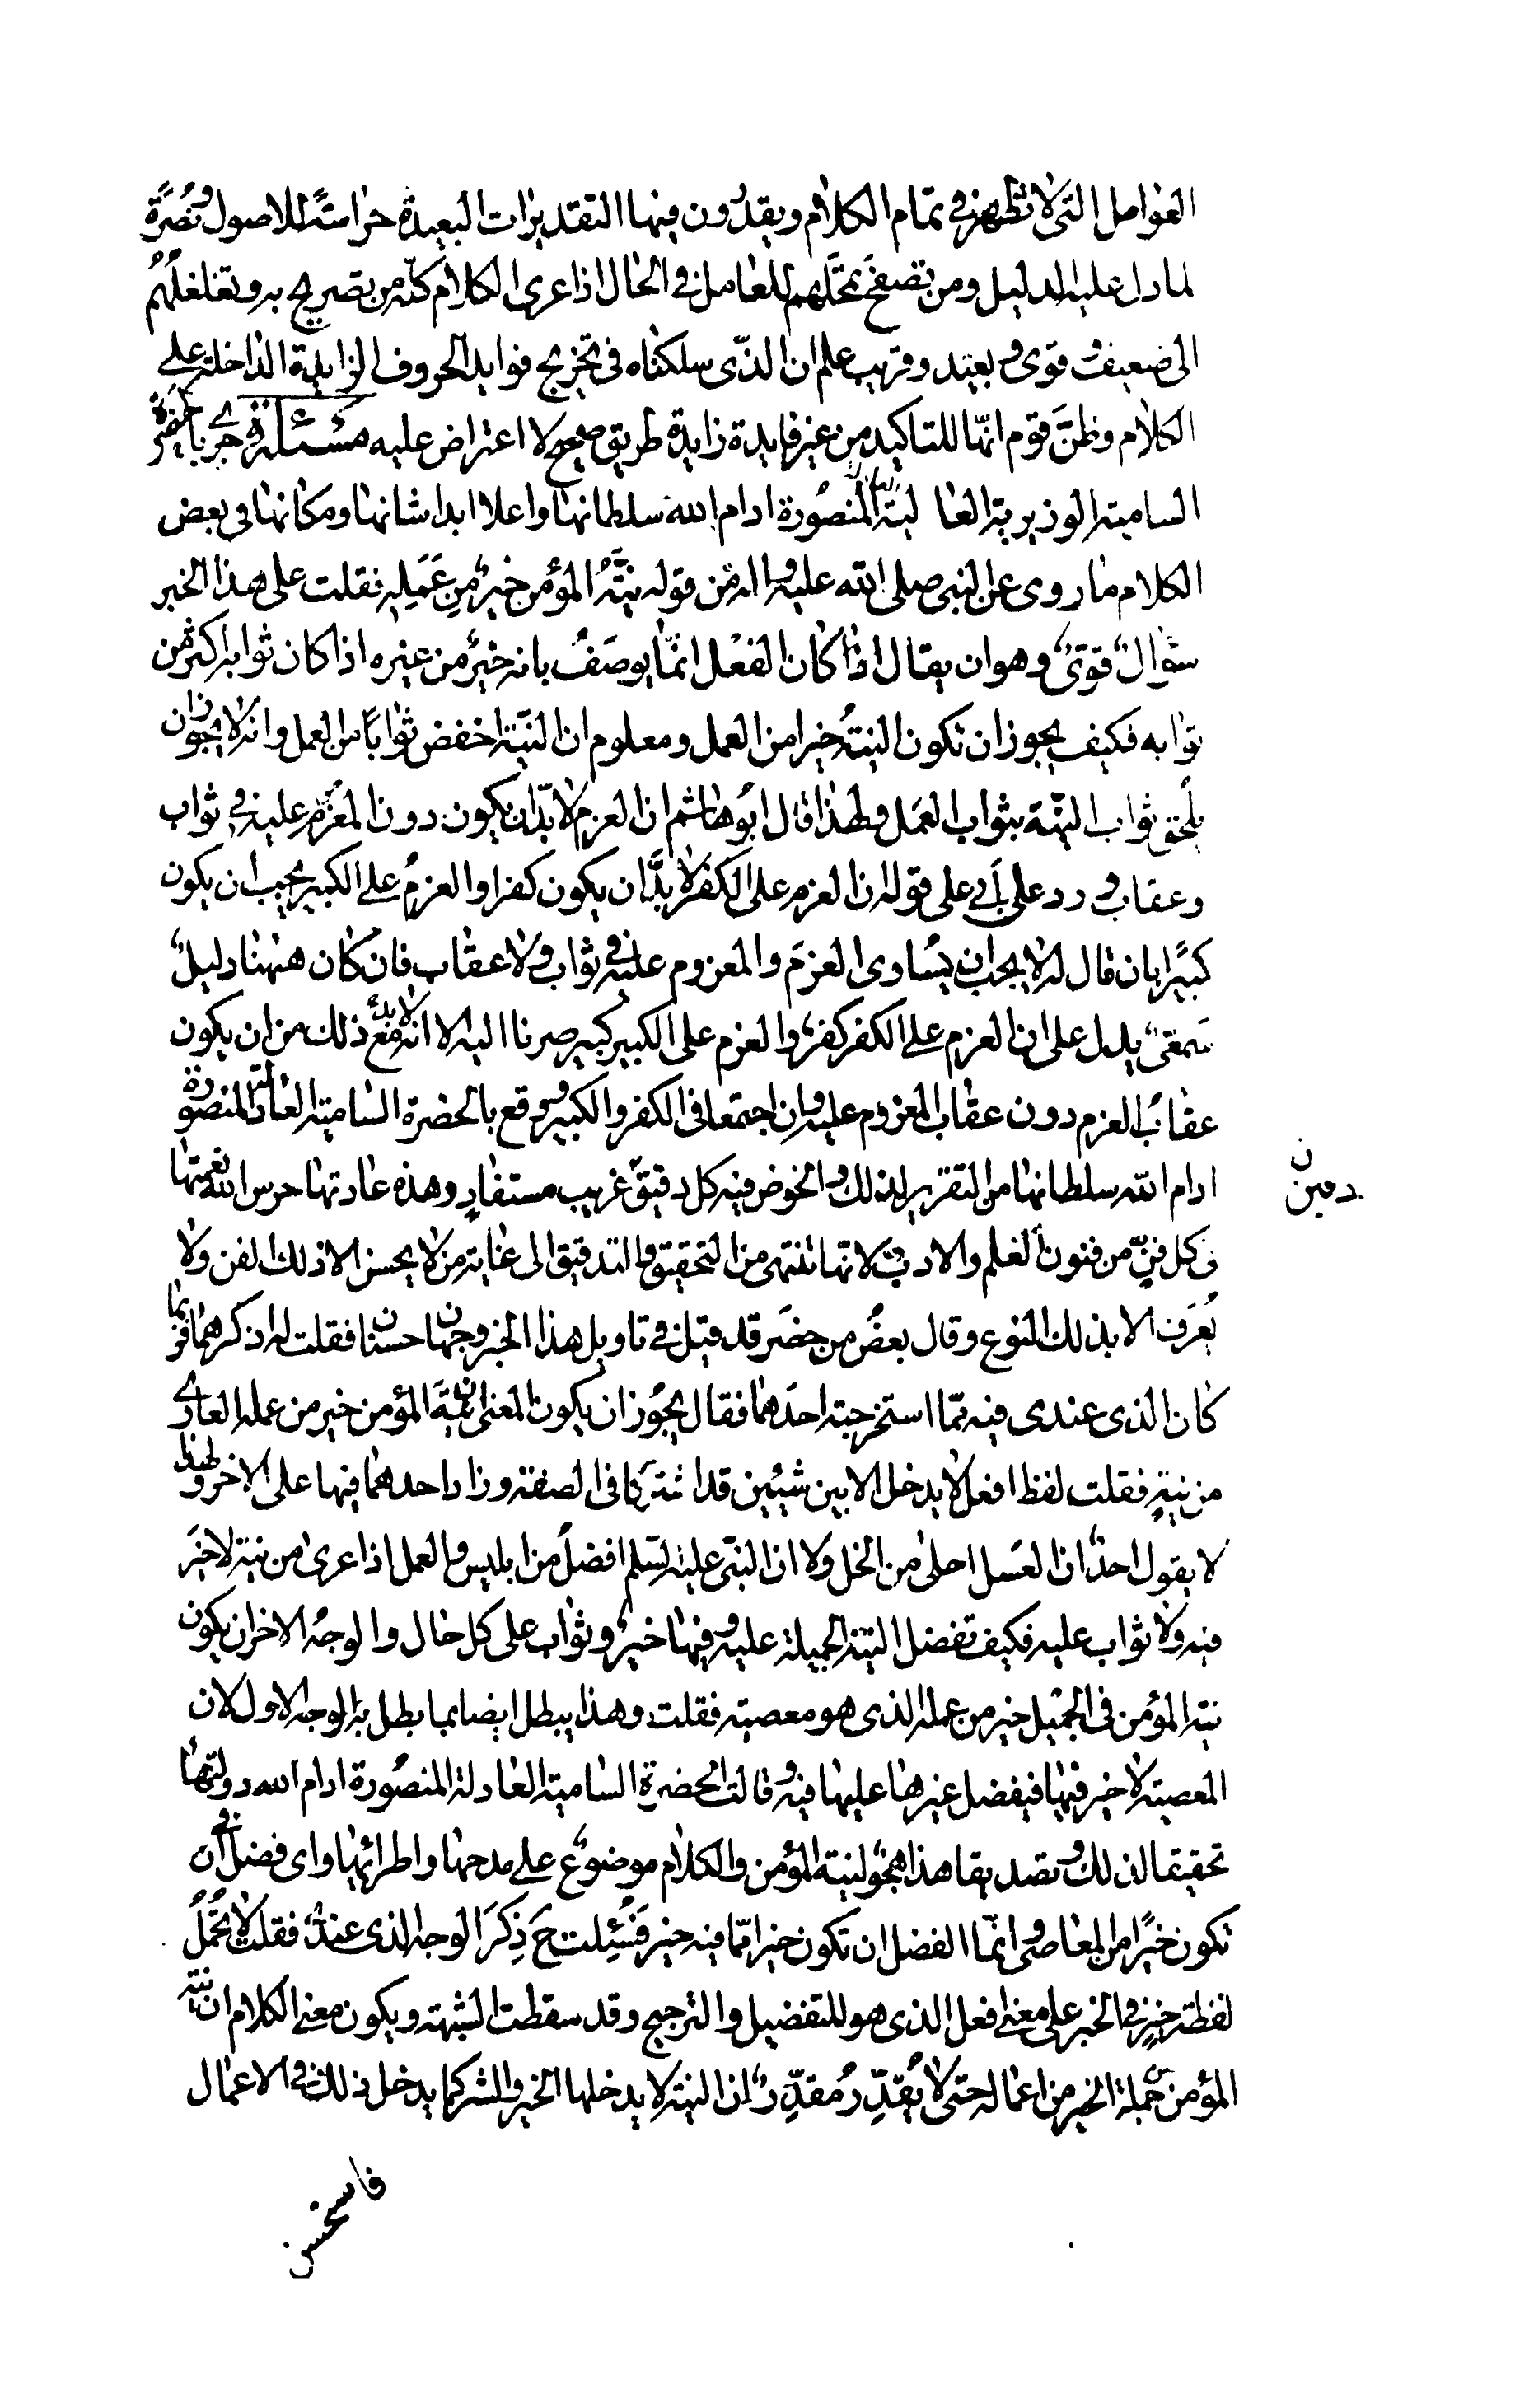 العوامل التى لا تظهر فى تمام الكلام ويقدرون فيها التقديرات البعيدة حراسة للاصول ونصرة
لما دل عليه الدليل ومن تصفح تمحلهم للعامل فى الحال اذا عرى الكلام كله من تصريح به وتغلغلهم
الى ضعيف وقوى وبعيد وقريب علم ان الذى سلكناه فى تخريج فوايد الحروف الزايدة الداخلة على
الكلام وظن قوم انها للتاكيد من غير فايدة زايدة طريق صحيح لا اعتراض عليه مسئلة جرى بالحضرة
السامية الوزيرية العالية المنصورة ادام الله سلطانها واعلا ابدا شانها ومكانها فى بعض
الكلام ما روى عن النبى صلى الله عليه واله من قوله نية المؤمن خير من عمله فقلت على هذا الخبر
سؤال قوى وهو ان يقال اذا كان الفعل انما يوصف بانه خير من غيره اذا كان ثوابه اكثر من
ثوابه فكيف يجوز ان تكون النية خيرا من العمل ومعلوم ان النية اخفض ثوابا من العمل وانه لا يجوز ان
يلحق ثواب النية بثواب العمل ولهذا قال ابو هاشم ان العزم لا بد ان يكون دون المعزوم عليه فى ثواب
وعقاب ورد على ابى على قوله ان العزم على الكفر لا بد ان يكون كفرا والعزم على الكبير يجب ان يكون
كبيرا بان قال له لا يجب ان يساوى العزم والمعزوم عليه فى ثواب ولا عقاب فان كان ههنا دليل
سمعى يدل على ان العزم على الكفر كفر والعزم على الكبير كبير صرنا اليه الا انه لا بد مع ذلك من ان يكون
عقاب العزم دون عقاب المعزوم عليه وان اجتمعا فى الكفر والكبير ووقع بالحضرة السامية العادلة المنصورة
ادام الله سلطانها من التقرير لذلك والخوض فيه كل دقيق غريب مستفاد وهذه عادتها حرس الله نعمتها
فى كل فن من فنون العلم والادب لانها تنتهى من التحقيق والتدقيق الى غاية من لا يحسن الا ذلك الفن ولا
يعرف الا بذلك النوع وقال بعض من حضر قد قيل فى تاويل هذا الخبر وجهان حسنان فقلت له اذكرهما فربما
كان الذى عندى فيه مما استخرجته احدهما فقال يجوز ان يكون المعنى ان نية المؤمن خير من عمله العارى
من نية فقلت لفظ افعل لا يدخل الا بين شيئين قد اشتركا فى الصفة وزاد احدهما فيها على الاخر ولهذا
لا يقول احد ان العسل احلى من الخل ولا ان النبى عليه السلم افضل من ابليس والعمل اذا عرى من نية لا خير
فيه ولا ثواب عليه فكيف تفضل النية الجميلة عليه وفيها خير وثواب على كل حال والوجه الاخر ان يكون
نية المؤمن فى الجميل خير من عمله الذى هو معصية فقلت وهذا يبطل ايضا بما بطل به الوجه الاول لان
المعصية لا خير فيها فيفضل غيرها عليها فيه وقالت الحضرة السامية العادلة المنصورة ادام الله دولتها
تحقيقا لذلك وتصديقا هذا هجو لنية المؤمن والكلام موضوع على مدحها واطرائها واى فضل فى ان
تكون خيرا من المعاصى وانما الفضل ان تكون خيرا مما فيه خير فسئلت ح ذكر الوجه الذى عندى فقلت لا تحمل
لفظة خير فى الخبر على معنى افعل الذى هو للتفضيل والترجيح وقد سقطت الشبهة ويكون معنى الكلام ان نية
المؤمن من جملة الخير من اعماله حتى لا يقدر مقدر ان النية لا يدخلها الخير والشر كما يدخل ذلك فى الاعمال
فاستحسن